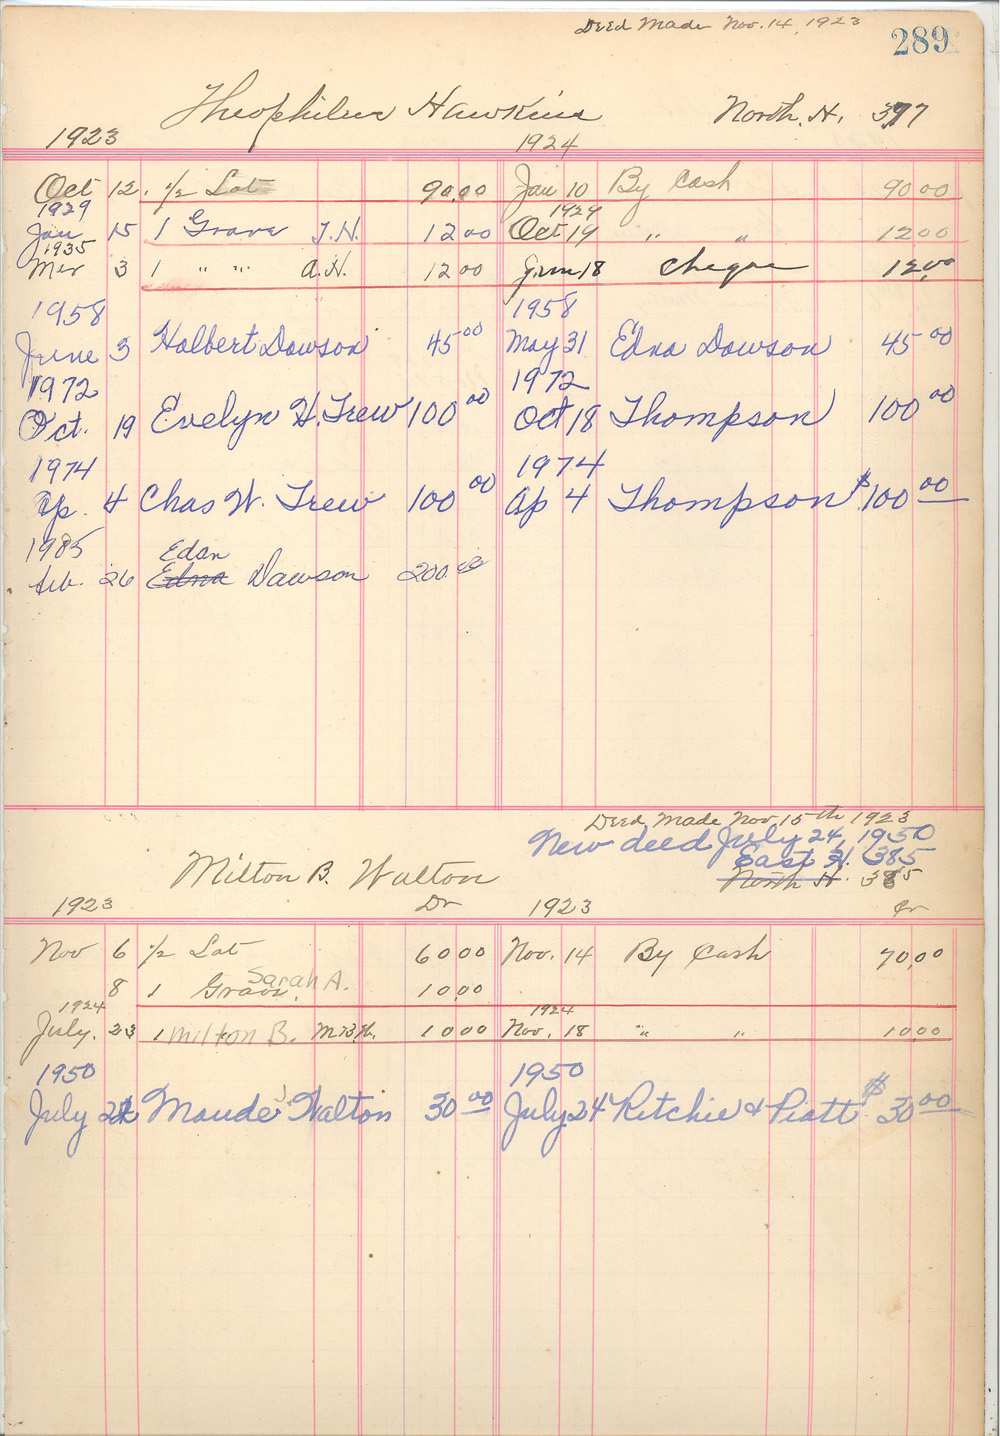 Deed Made Nov. 14, 1923
289
Theophilus Hawkins North. H. 377
1923 1924
Oct 12. 1/2 Lot 90.00 Jan 10 By Cash 90 00
1929 1929
Jan 15 1 Grave T.H. 12 00 Oct 19 " " 12 00
1935
Mer 3 1 " " A.H. 12 00 18 Cheque 12.00
1958 1958
June 3 Halbert Dawson 45 00 May 31 Edna Dawson 45 00
1972 1972
Oct. 19 Evelyn H. Trew 100 00 Oct 18 Thompson 100 00
1974 1974
Ap. 4 Chas W. Trew 100 00 Ap 4 Thompson $100 00
1985 Edan
Feb. 26 Edna Dawson 200.00
Deed Made Nov 15th 1923
New deed July 24, 1950
East H. 385
Milton B. Walton North H. 385
1923 Dr 1923 Cr
Nov 6 1/2 Lot 60 00 Nov. 14 By Cash 70.00
8 1 Grave. Sarah A. 10.00
1924 1924
July. 23 1 Milton B. M.B.W. 10 00 Nov. 18 " " 10.00
1950 1950
July 24 Maude Walton 30 00 July 24 Ritchie & Piatt $30 00